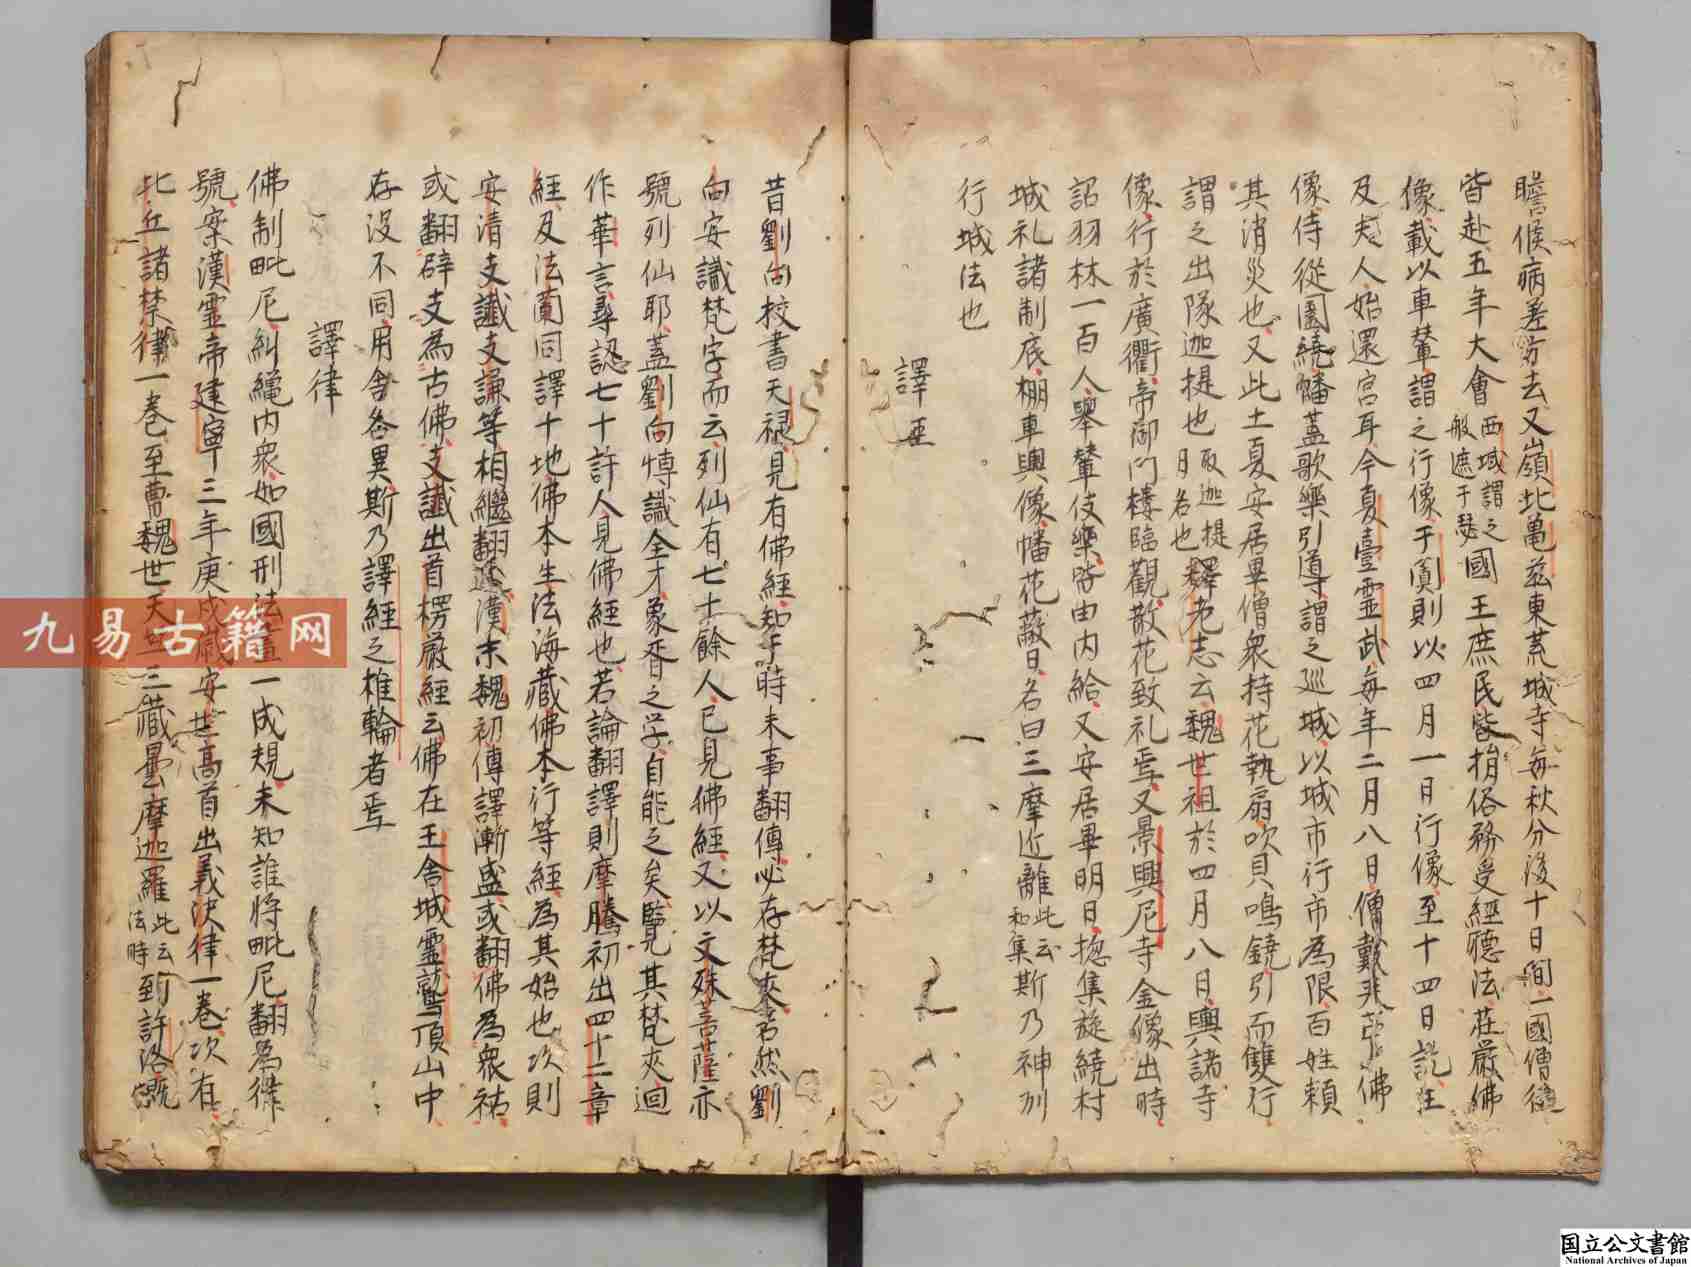 瞻候病差方去又嶺北亀茲東荒城寺每秋分後十日間一國僧徒
皆赴五年大會西域謂之般遮于瑟國王庶民皆捐俗務受經聽法莊嚴佛
像載以車輦謂之行像于闐則以四月一日行像至十四日訖王
及夫人始還宮耳今夏臺靈武每年二月八日僧戴夾苧佛
像侍從圍繞幡蓋歌樂引導謂之巡城以城市行市為限百姓賴
其消災也又此土夏安居畢僧衆持花執扇吹貝鳴鐃引而雙行
謂之出隊迦提也取迦提月名也釋老志云魏世祖於四月八日輿諸寺
像行於廣衢帝御門樓臨觀散花致礼焉又景興尼寺金像出時
詔羽林一百人舉輦伎樂皆由內給又安居畢明日揔集旋繞村
城礼諸制底棚車輿像幡花蔽日名曰三摩近離此云和集斯乃神州
行城法也
譯經
昔劉向校書天禄見有佛經知于時未事翻傳必存梵夾若然劉
向安識梵字而云列仙有七十餘人已見佛經又以文殊菩薩亦
號列仙耶蓋劉向博識全才象胥之学自能之矣覽其梵夾迴
作華言尋認七十許人見佛經也若論翻譯則摩騰初出四十二章
經及法蘭同譯十地佛本生法海藏佛本行等經為其始也次則
安清支讖支謙等相繼翻述漢末魏初傳譯漸盛或翻佛為衆祐
或翻辟支為古佛支讖出首楞嚴經云佛在王舍城靈鷲頂山中
存没不同用舍各異斯乃譯經之椎輪者焉
譯律
佛制毗尼糾繩内衆如國刑法畫一成規未知誰將毗尼翻為律
號案漢靈帝建寧三年庚戌歲安世高首出義決律一卷次有
比丘諸禁律一卷至曹魏世天竺三藏曇摩迦羅此云法時到許洛慨
九易古籍网
国立公文書館
National Archives of Japan